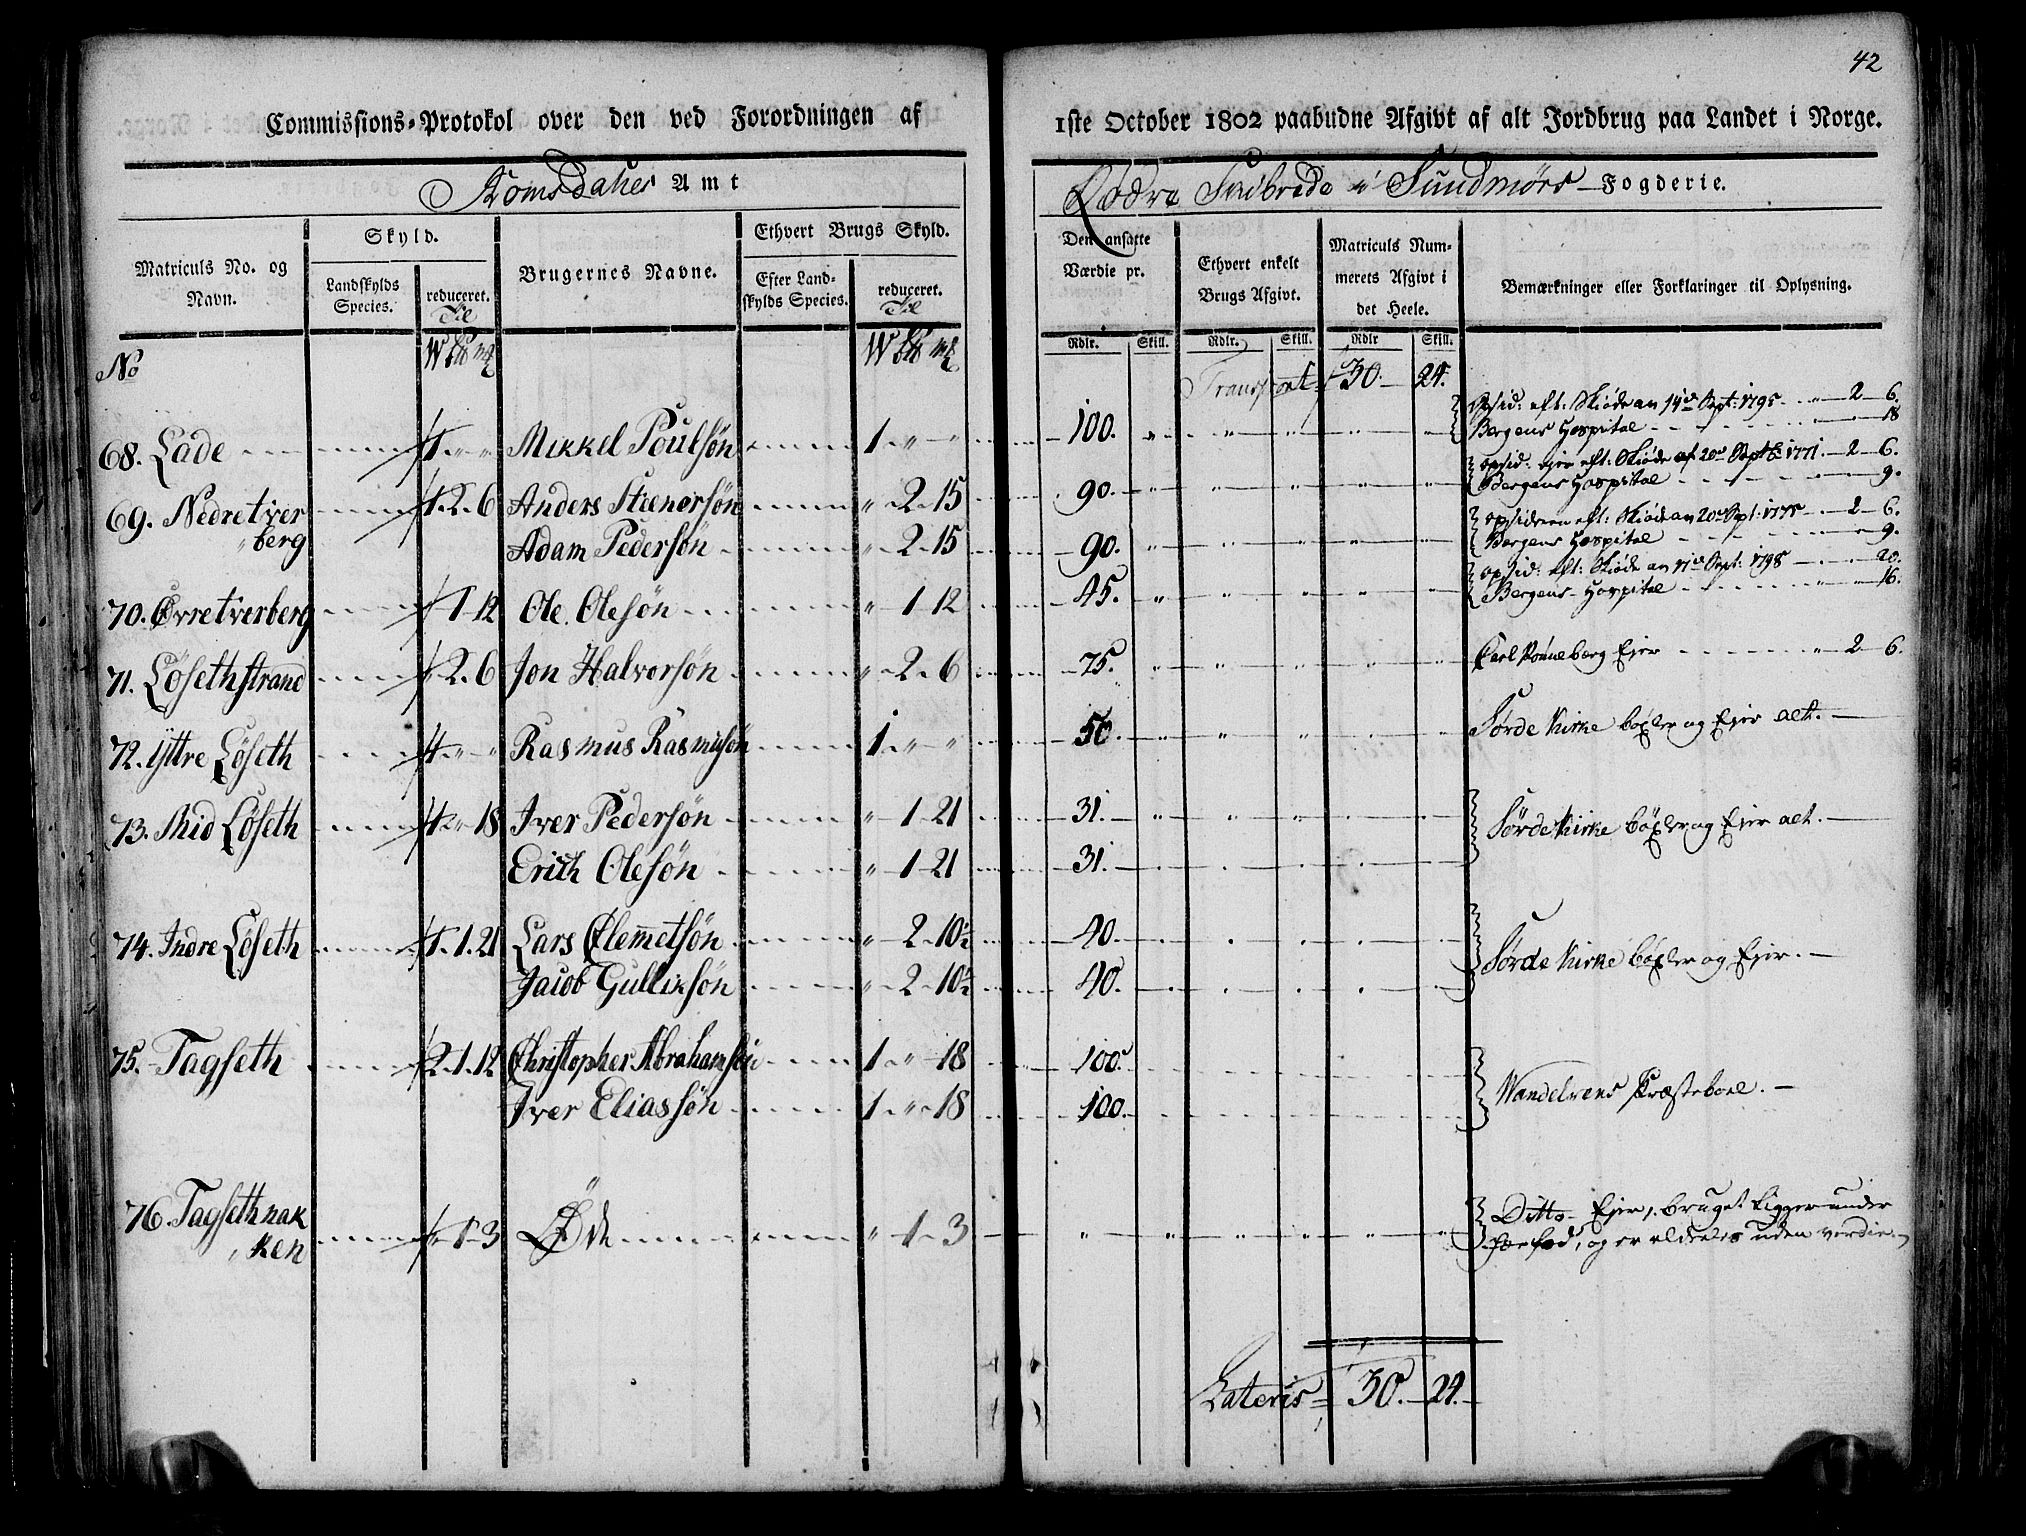 42
Commissions-Protokol over den ved Forordningen af 1ste October 1802 paabudne Afgivt af alt Jordbrug paa Landet i Norge.
Romsdahls Amt
Schibrede i Sundmørs Fogderie.
Matriculs No. og Navn.
Skyld.
Landskylds Species.
reduceret. Til
Brugernes Navne.
Ethvert Brugs Skyld.
Efter Landskylds Species.
reduceret. Til
Den ansatte Værdie pr.
Ethvert enkelt Brugs Afgivt.
Matriculs Nummerets Afgivt i det Heele.
Bemærkninger eller Forklaringer til Oplysning.
Rdlr. Skill. Rdlr. Skill. Rdlr Skill.
No
Transport 30. 24.
68. Lade 1 " " Mikkel Poulsøn 1 " " 100. Opsid: eft: Skiøde an 14de Sept: 1795 2 6.
Bergens Hospital 18
69. Nedretver 1 2 6 Anders Steenersøn " 2 15 90. opsid: ejer eft: Skiøde af 20de Septb 1771. 2 6.
Bergens Hospital 9.
berg Adam Pedersøn " 2 15 90. opsideren eft: Skiøde an 20de Sept: 1775 2 6.
Bergens Hospital 9.
70. Øvretverberg " 1 12 Ole Olesøn " 1 12 45. opsid: eft: Skiøde an 11de Sept: 1798 20.
Bergens Hospital 16.
71. Løsethstrand " 2 6 Jon Halvorsøn " 2 6 75. Carl Rønneberg Ejer 2 6.
72. Yttre Løseth 1 " " Rasmus Rasmusøn 1 " " 50. Sørde Kirke böxler og Ejer alt.
73. Mid Løseth 1 " 18 Iver Pedersøn " 1 21 31. Sørde Kirke böxler og Ejer alt.
Erich Olesøn " 1 21 31.
74. Indre Løseth 1 1 21 Lars Clemetsøn " 2 10½ 40. Sørde Kirke böxler og Ejer.
Jacob Gulliksøn " 2 10½ 40.
75. Tagseth 2 1 12 Christopher Abrahamsøn 1 " 18 100. Wandelvens Præsteboel.
Iver Eliassøn 1 " 18 100.
76. Tagsethnak " 1 3 Øde " 1 3 " Ditto Ejer, bruget ligger under
ken og er aldeles uden verdie.
Lateris 30. 24.